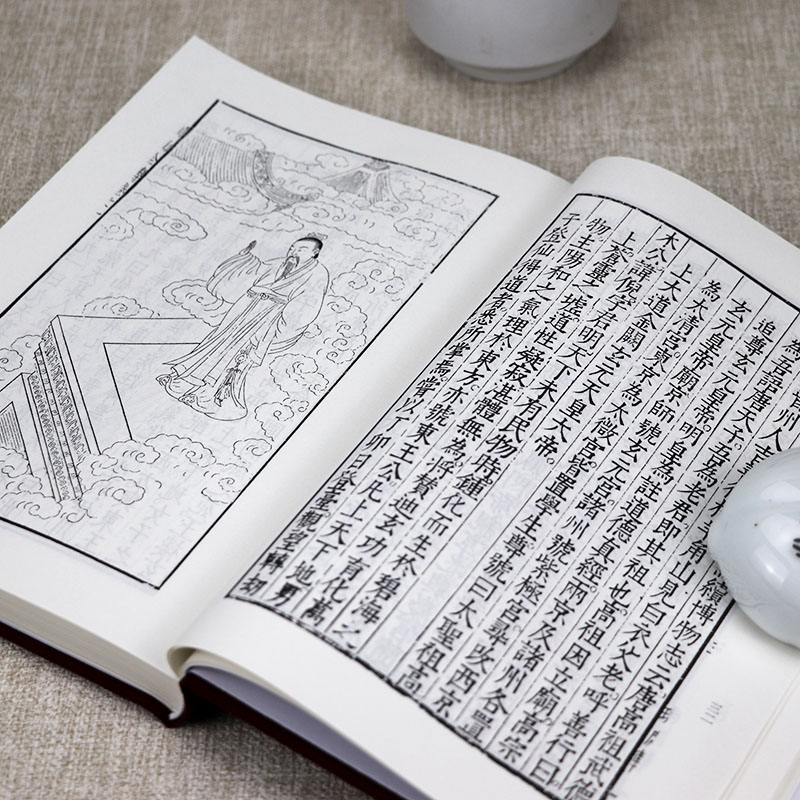 續博物志云唐高祖武德
州人吉善行 角山見白衣父老呼善行曰
為吾語唐天子吾為老君即其祖也高祖因立廟高宗
追尊玄元皇帝明皇為註道德真經兩京及諸州各置
玄元皇帝廟京師號玄元宮諸州號紫極宮尋改西京
為太清宮東京為太微宮皆置學生尊號曰大聖祖高
上大道金闕玄元天皇大帝
木公諱倪字君明天下未有民物時鍾化而生於碧海之
上蒼靈之墟道性凝寂湛體無為將贊迪玄功育化萬
物主陽和之氣理於東方亦號東王公凡上天下地男
子登仙得道者悉所掌焉嘗以丁卯日登臺觀望轉劫